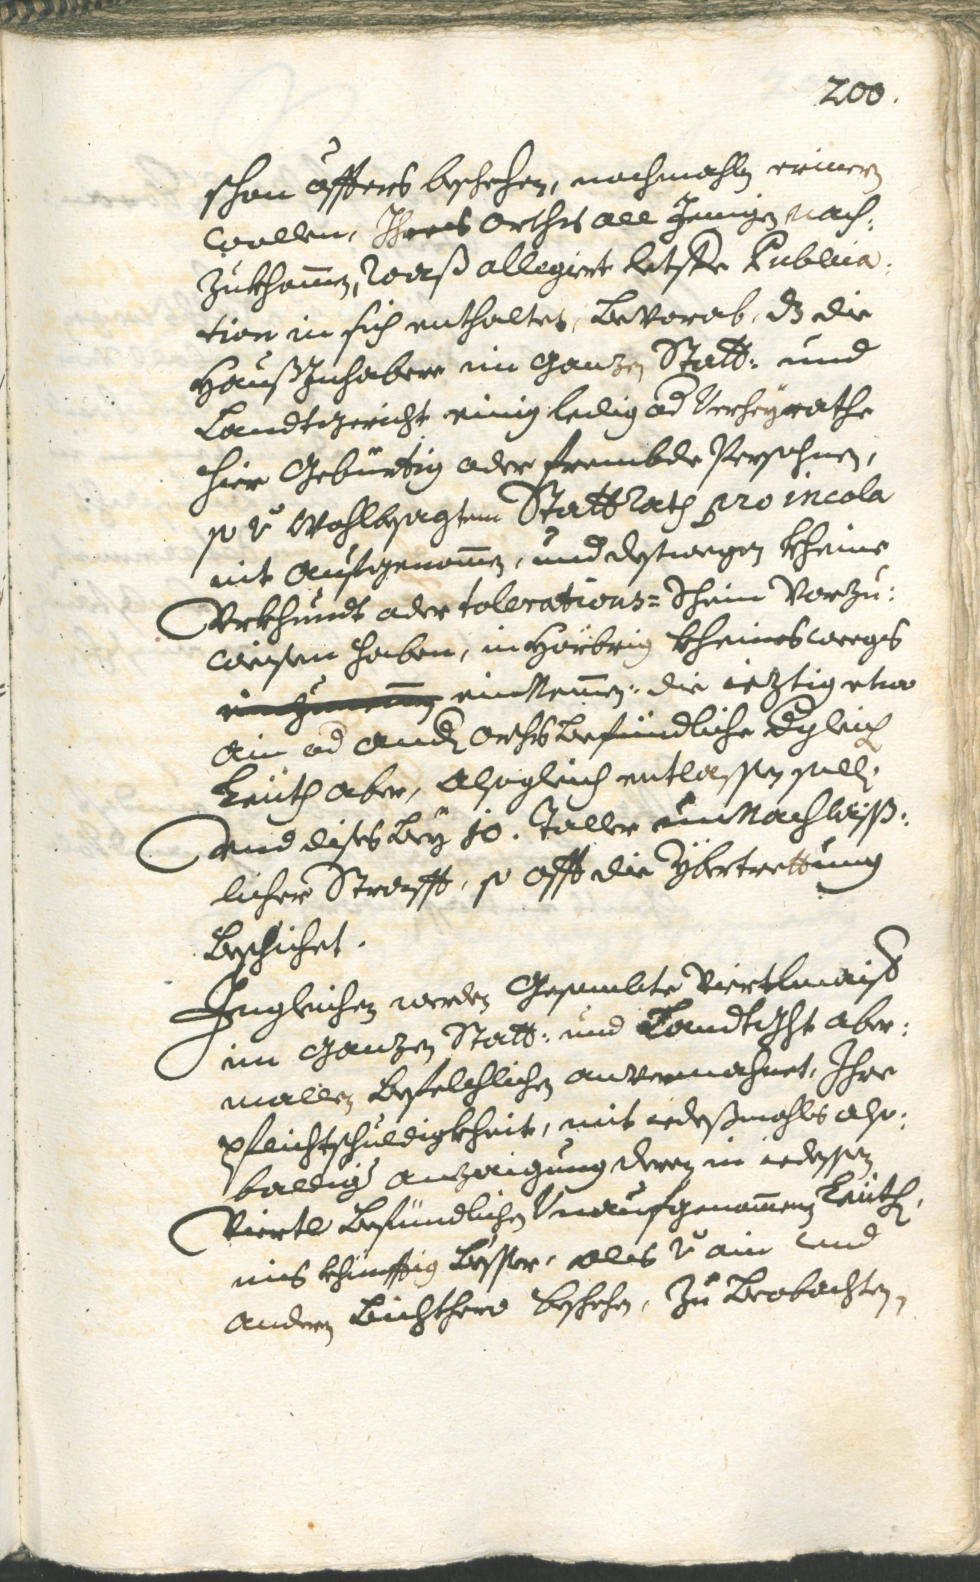 200.
schon öffters beschehen, nochmahln erinern
wollen, Ihres Orths all Jenigen nach:
zukhomen, waß allegirte letste Publica:
tion in sich enthaltet, bevorab, dz die
Haußinhabere im ganzen Statt: und
Landtgericht einig ledig od Verheyrathe
hier Gebürtig oder frembde Persohnen,
so v wohlbesagtem Statt Rath pro incola
nit aufgenomen, und destwegen kheine
Vrkhundt oder tolerations= Schein vorzu:
weisen haben, in Hörbrig kheineswegs
einNemen: die ieztig etwo
ain od andn orths befündliche dgleich
Leüth aber, alsogleich entlassen solln
und dises bey 10. Taller unNachlässl:
licher Straff, so offt die Ybertrettung
beschichet.
Ingleichen werden Gesambte Viertlmaist
im ganzen Statt: und Landtght aber:
mallen befelchlichen anvermahnet, Ihre
pflichtschuldigkheit, mit iedeßmahls also:
baldig anzaigung deren in iedessen
Viertl befündlichen Vnaufgenomenen Leüth,
ins khünfftig besser, als v ain und
andern bishero beschehen, zu beobachten,